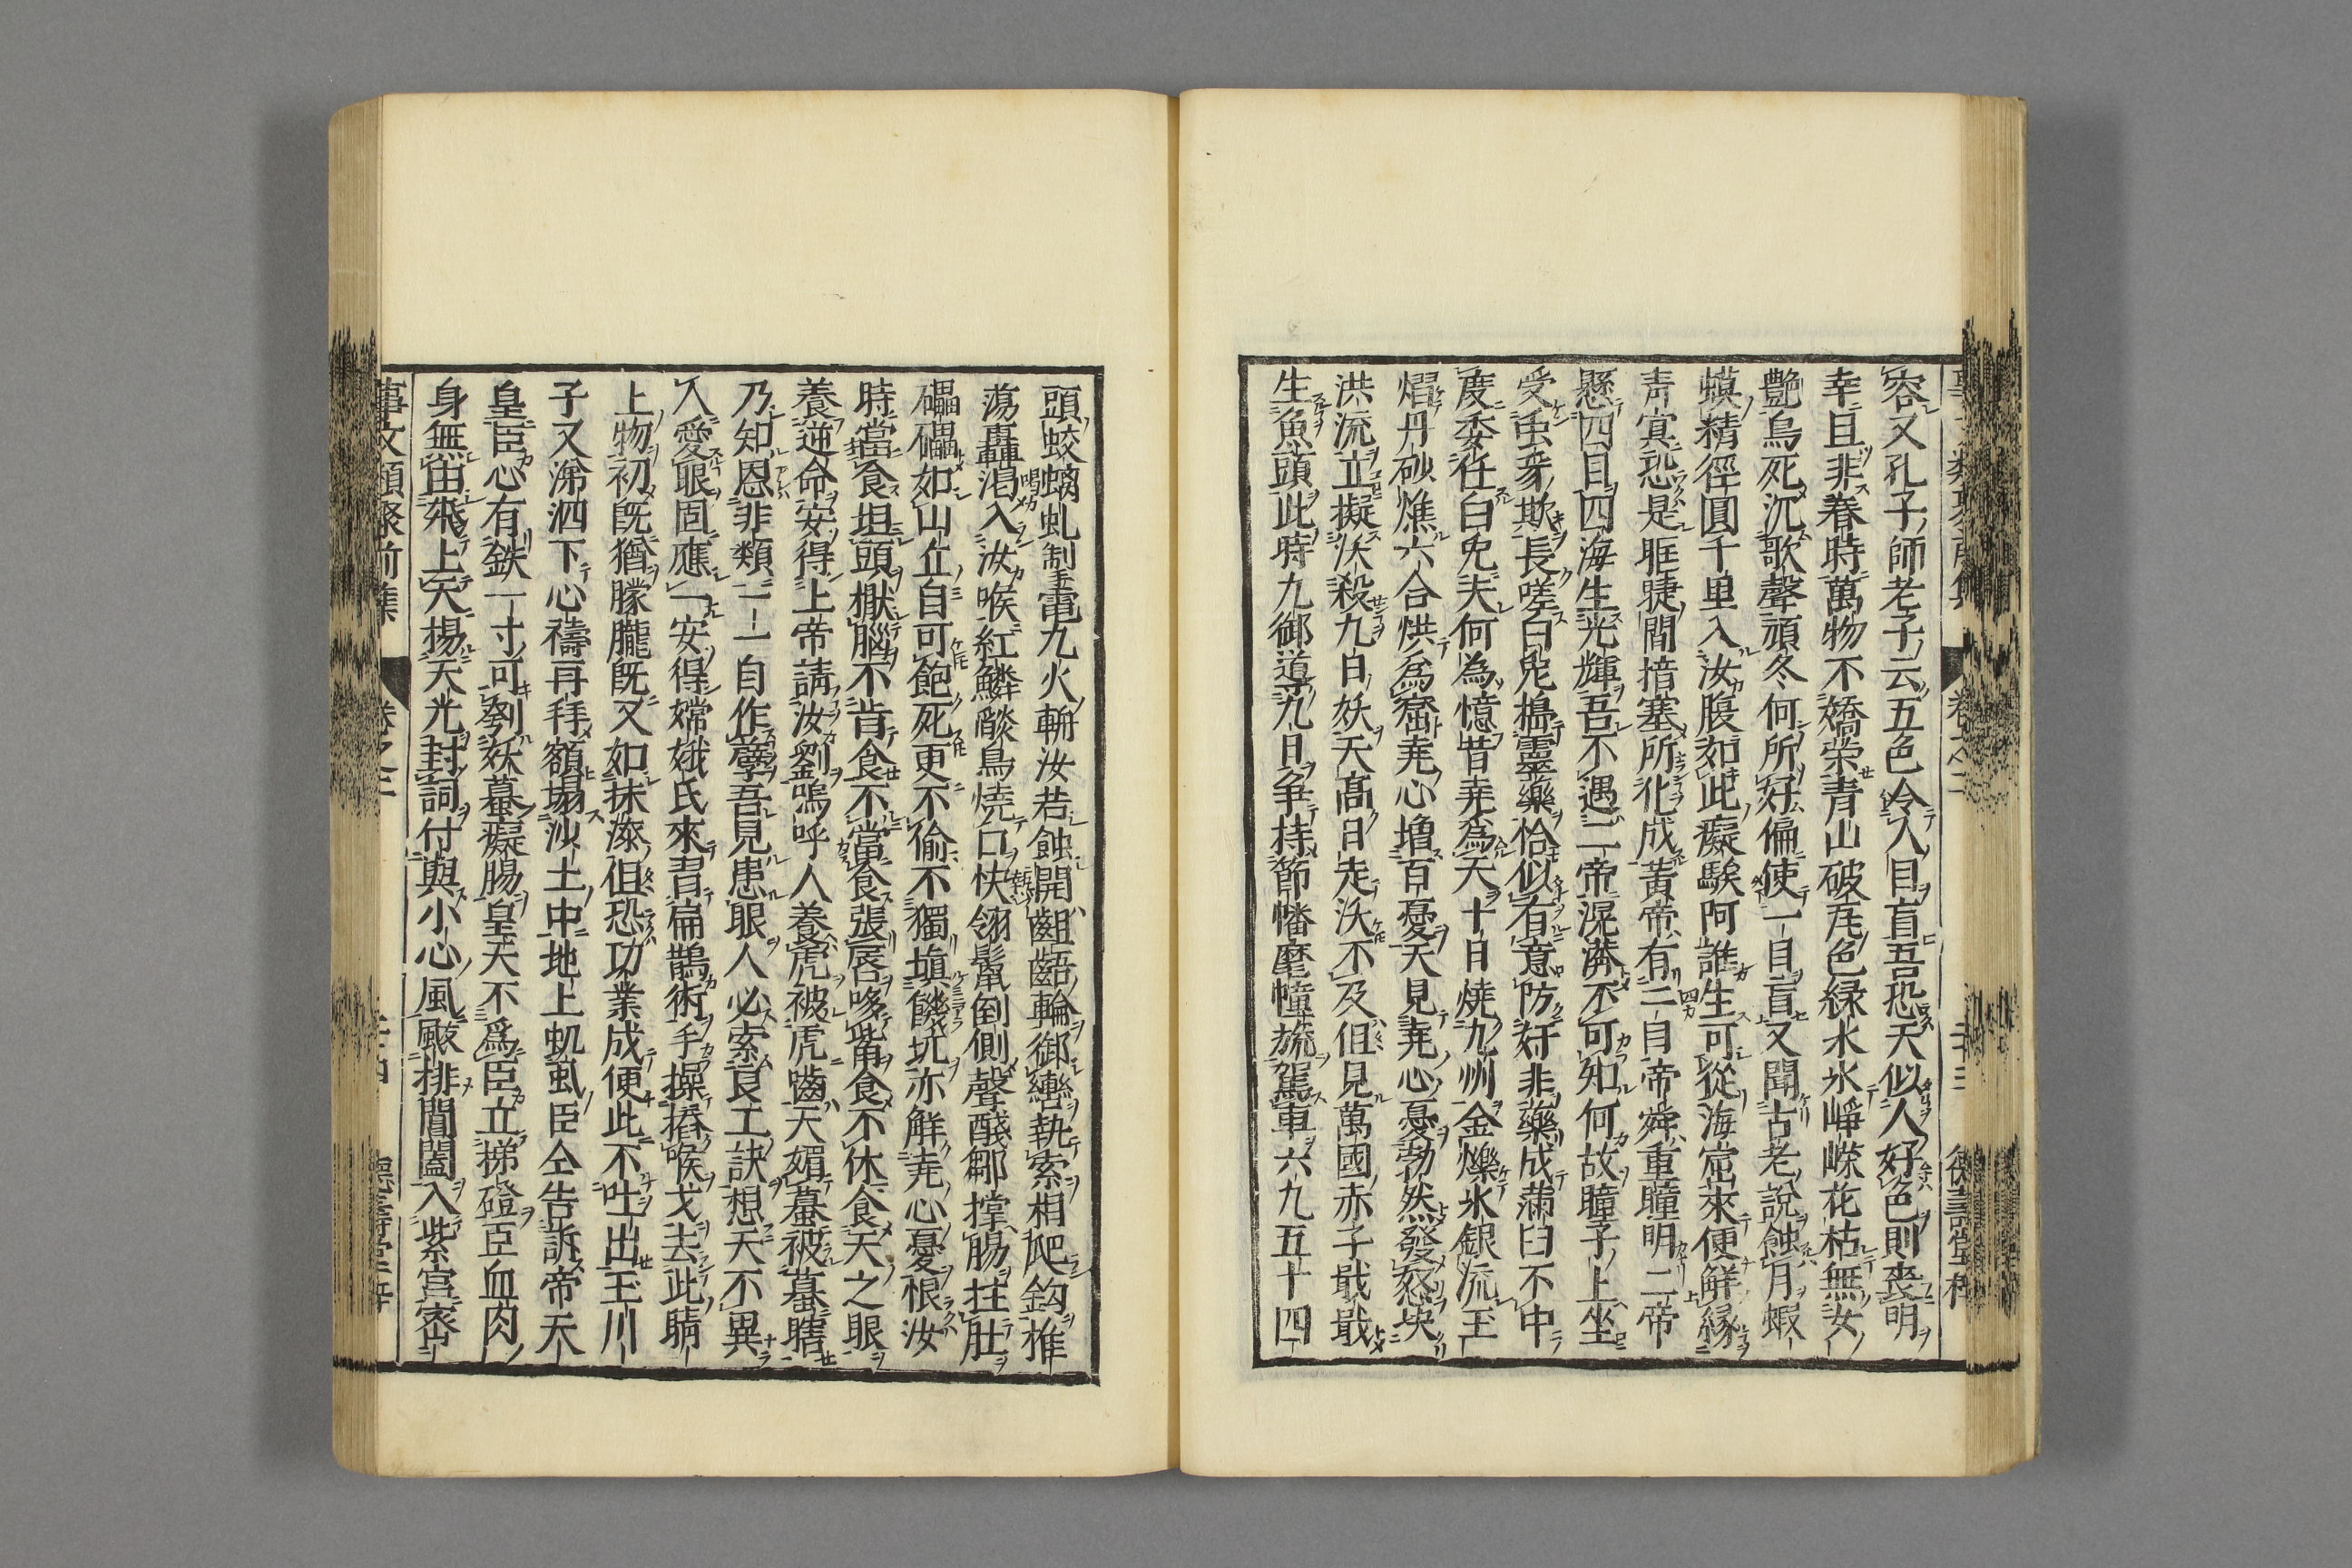 容又孔子師老子云五色令人目盲吾恐天似人好色則喪明
幸且非春時萬物不嬌荣青山破尾色緑水氷崢嶸花枯無女
艷鳥死沉歌聲頑冬何所好偏使一目盲又聞古老說蝕月蝦
蟆精徑圓千里入汝腹如此癡騃阿誰生可從海窟來便觧緣
青冥恐是眶睫間揞塞所化成黄帝有二目帝舜重瞳明二帝
懸四目四海生光輝吾不遇二帝滉漭不可知何故瞳子上坐
受虫豸欺長嗟白兔搗靈藥恰似有意防奸非藥成蒲臼不中
度委任白兎夫何為憶昔尭為天十日燒九州金爍水銀流玉
熠丹砂燋六合烘為窰尭心增百憂天見尭心憂勃然發怒决
洪流立擬沃殺九日妖天髙日走沃不及但見萬國赤子戢戢
生魚頭此時九御導九日争持節幡麾幢旒駕車六九五十四
頭蛟螭虬掣電九火輧汝若蝕開齟齬輪御轡執索相爬鈎推
蕩轟渇入汝喉紅鱗燄鳥燒口快翎鬣倒側聲醆鄒撑膓拄肚
礧礧如山丘自可飽死更不偷不獨塡饑坑亦觧尭心憂根汝
時當食埳頭摋腦不肯食不當食張唇哆觜食不休食天之眼
養逆命安得上帝請汝劉嗚呼人養虎被虎嚙天媚蟇被蟇瞎
乃知恩非類一一自作孽吾見患眼人必索良工訣想天不異
人愛眼固應一安得嫦娥氏來習扁鵲術手操舂喉戈去此睛
上物初既猶朦朧既又如抹㓒但恐功業成便此不吐出玉川
子又涕泗下心禱再拜額搨沙土中地上蟣虱臣仝告訴帝天
皇臣心有鉄一寸可刳妖蟇癡膓皇天不爲臣立梯磴臣血肉
身無由飛上天揚天光封詞付與小心風颰排閶闔入紫宫宻
事文類聚前集 卷之二